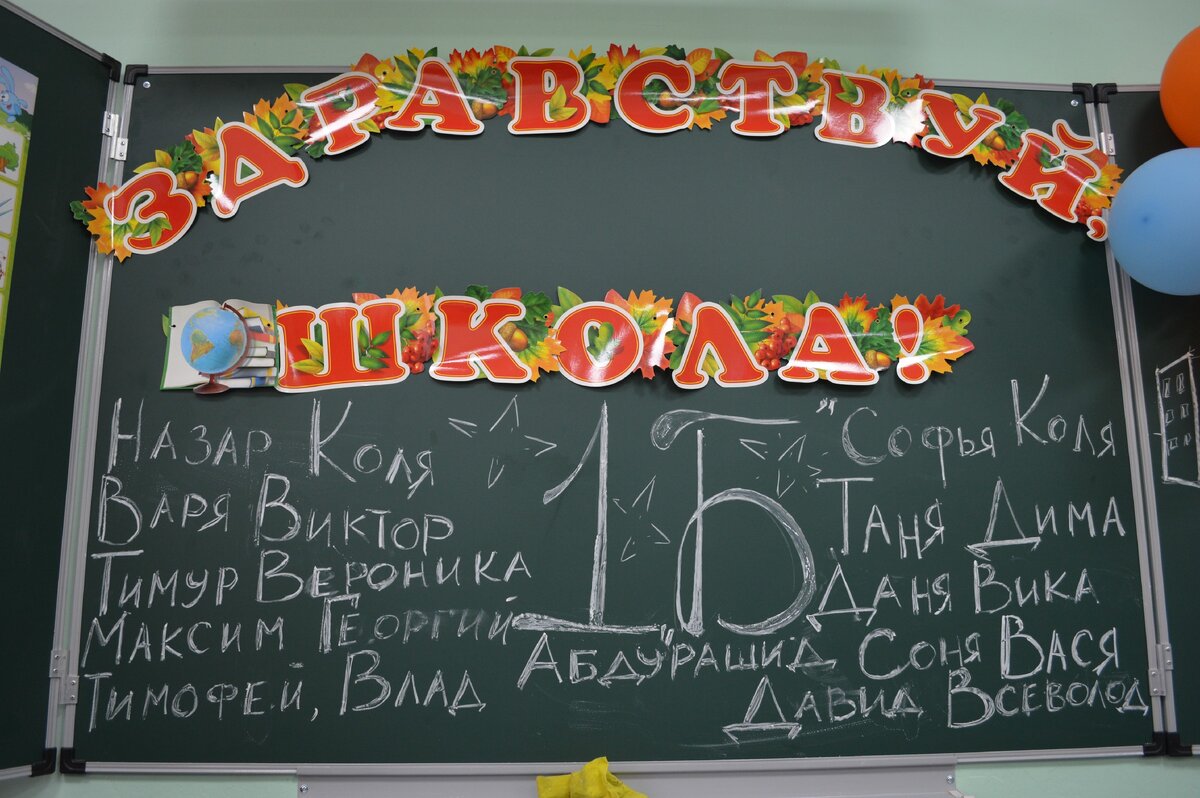 ЗДРАВСТВУЙ,
ШКОЛА!
НАЗАР КОЛЯ
ВАРЯ ВИКТОР
ТИМУР ВЕРОНИКА
МАКСИМ ГЕОРГИЙ
ТИМОФЕЙ, ВЛАД
"1Б"
СОФЬЯ КОЛЯ
ТАНЯ ДИМА
ДАНЯ ВИКА
АБДУРАШИД СОНЯ ВАСЯ
ДАВИД ВСЕВОЛОД